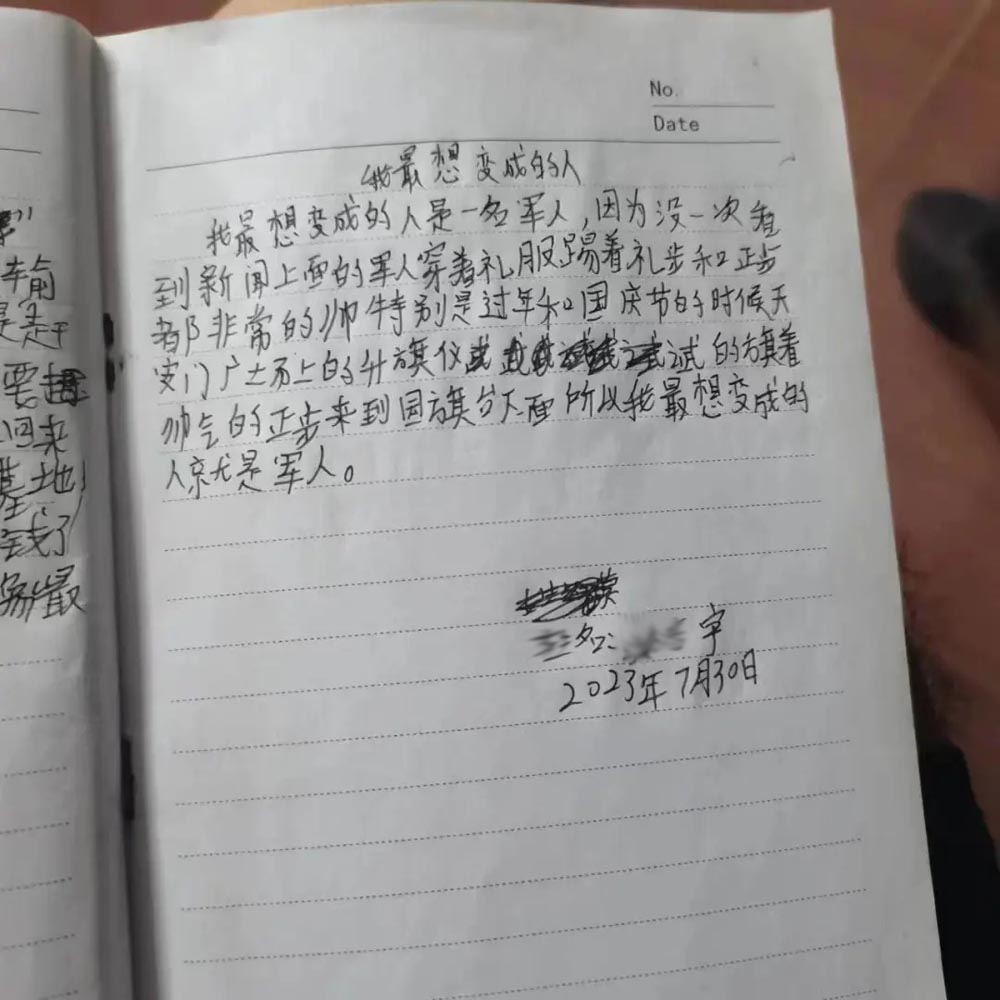 No.
Date
我最想变成的人
我最想变成的人是一名军人，因为没一次看
到新闻上面的军人穿着礼服踢着礼步和正步
都非常的帅特别是过年和国庆节的时候天
安门广场上的升旗仪 的旗着
帅气的正步来到国旗台下面所以我最想变成的
人就是军人。
名： 宇
2023年7月30日
前
是
要
回来
土地
钱了
最